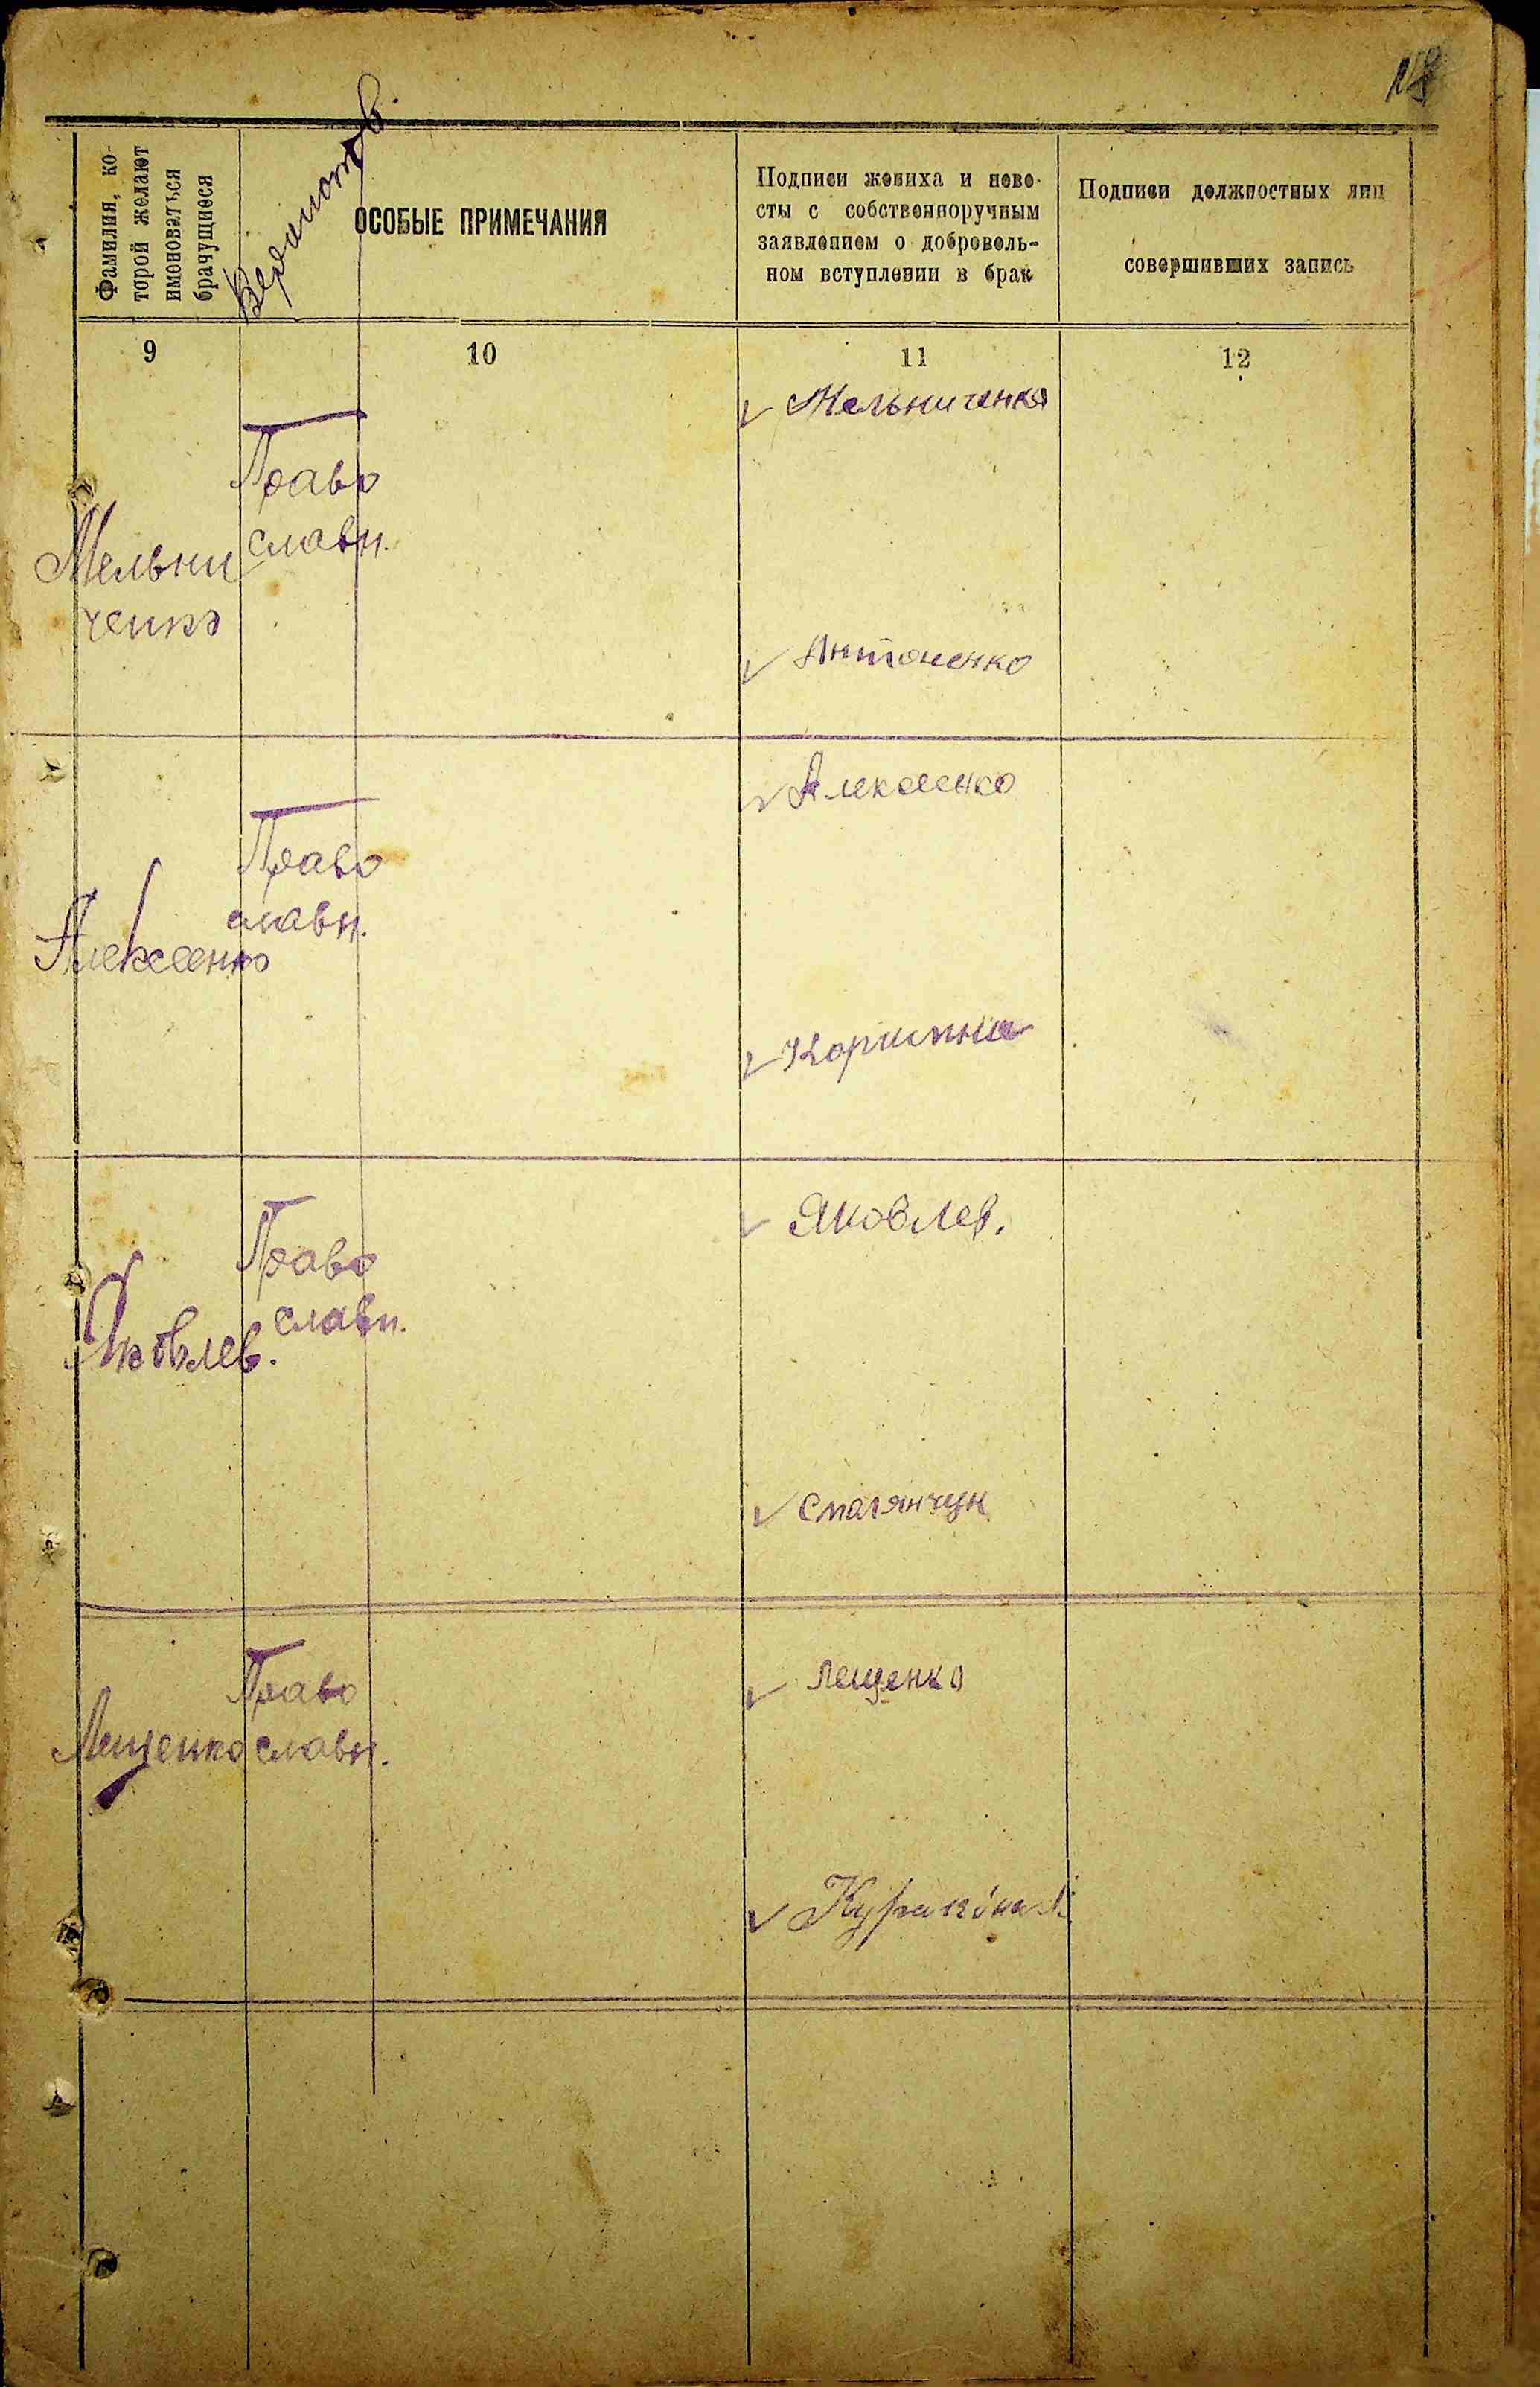 Фамилия, ко-
торой желают
имсноваться
брачущиеся
ОСОБЫЕ ПРИМЕЧАНИЯ
Подписи жениха и неве-
сты с собственноручным
заявлением о доброволь-
ном вступлении в брак
Подписи должностных лиц
совершивших запись
9
10
11
12
Мельниченко
Право
славн.
Мельни
ченко
Антоненко
Алексеенко
Право
славн.
Алексеенко
Яковлев.
Право
славн.
Яковлев.
Смагянчук
Лещенко
Право
Лещенко славн.